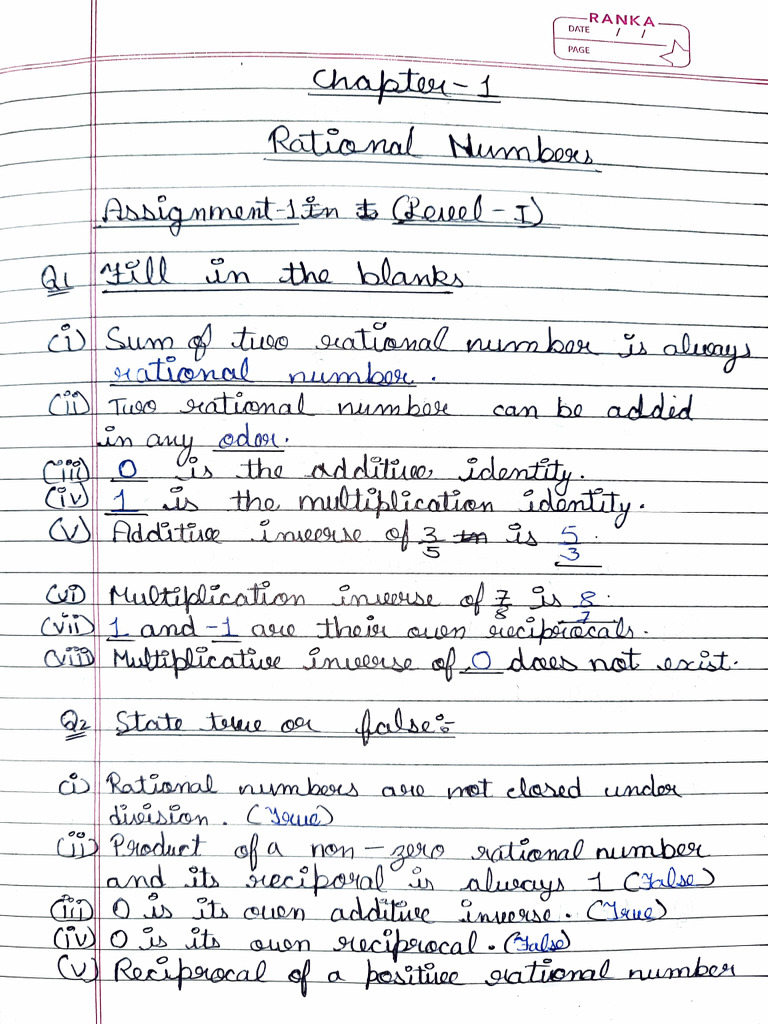 RANKA
DATE / /
PAGE
Chapter-1
Rational Numbers
Assignment-1 in (Level-I)
Q1 Fill in the blanks
(i) Sum of two rational number is always
rational number.
(ii) Two rational number can be added
in any odor.
(iii) 0 is the additive identity.
(iv) 1 is the multiplication identity.
(v) Additive inverse of 3/5 is 5/3.
(vi) Multiplication inverse of 7/8 is 8/7.
(vii) 1 and -1 are their own reciprocals.
(viii) Multiplicative inverse of 0 does not exist.
Q2 State true or false:-
(i) Rational numbers are not closed under
division. (True)
(ii) Product of a non-zero rational number
and its reciporal is always 1 (False)
(iii) 0 is its own additive inverse. (True)
(iv) 0 is its own reciprocal. (False)
(v) Reciprocal of a positive rational number